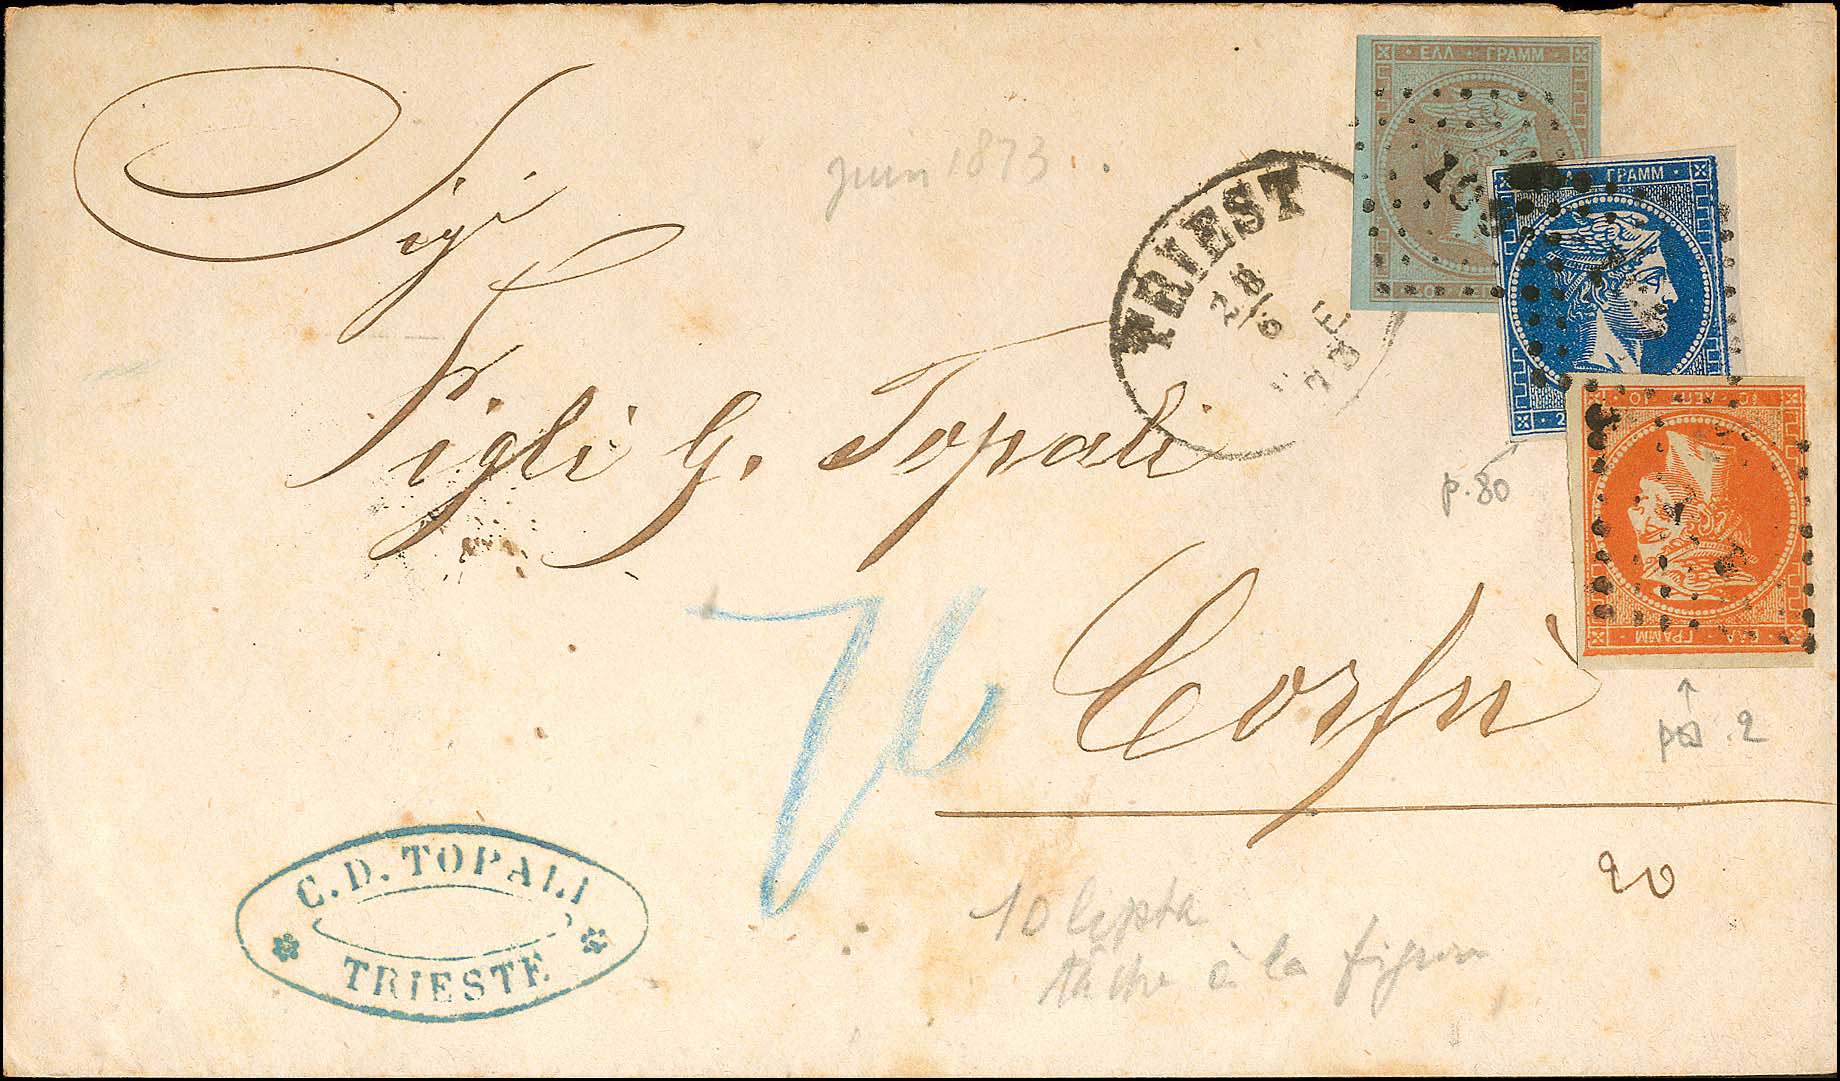 Sigi
Figli G. Topali
Corfù
juin 1873
TRIEST
28/6
ΕΛΛ · ΓΡΑΜΜ
ΓΡΑΜΜ
ΕΛΛ · ΓΡΑΜΜ
p. 80
pos. 2
C. D. TOPALI
TRIESTE
20
10 lepta
tâche à la figure